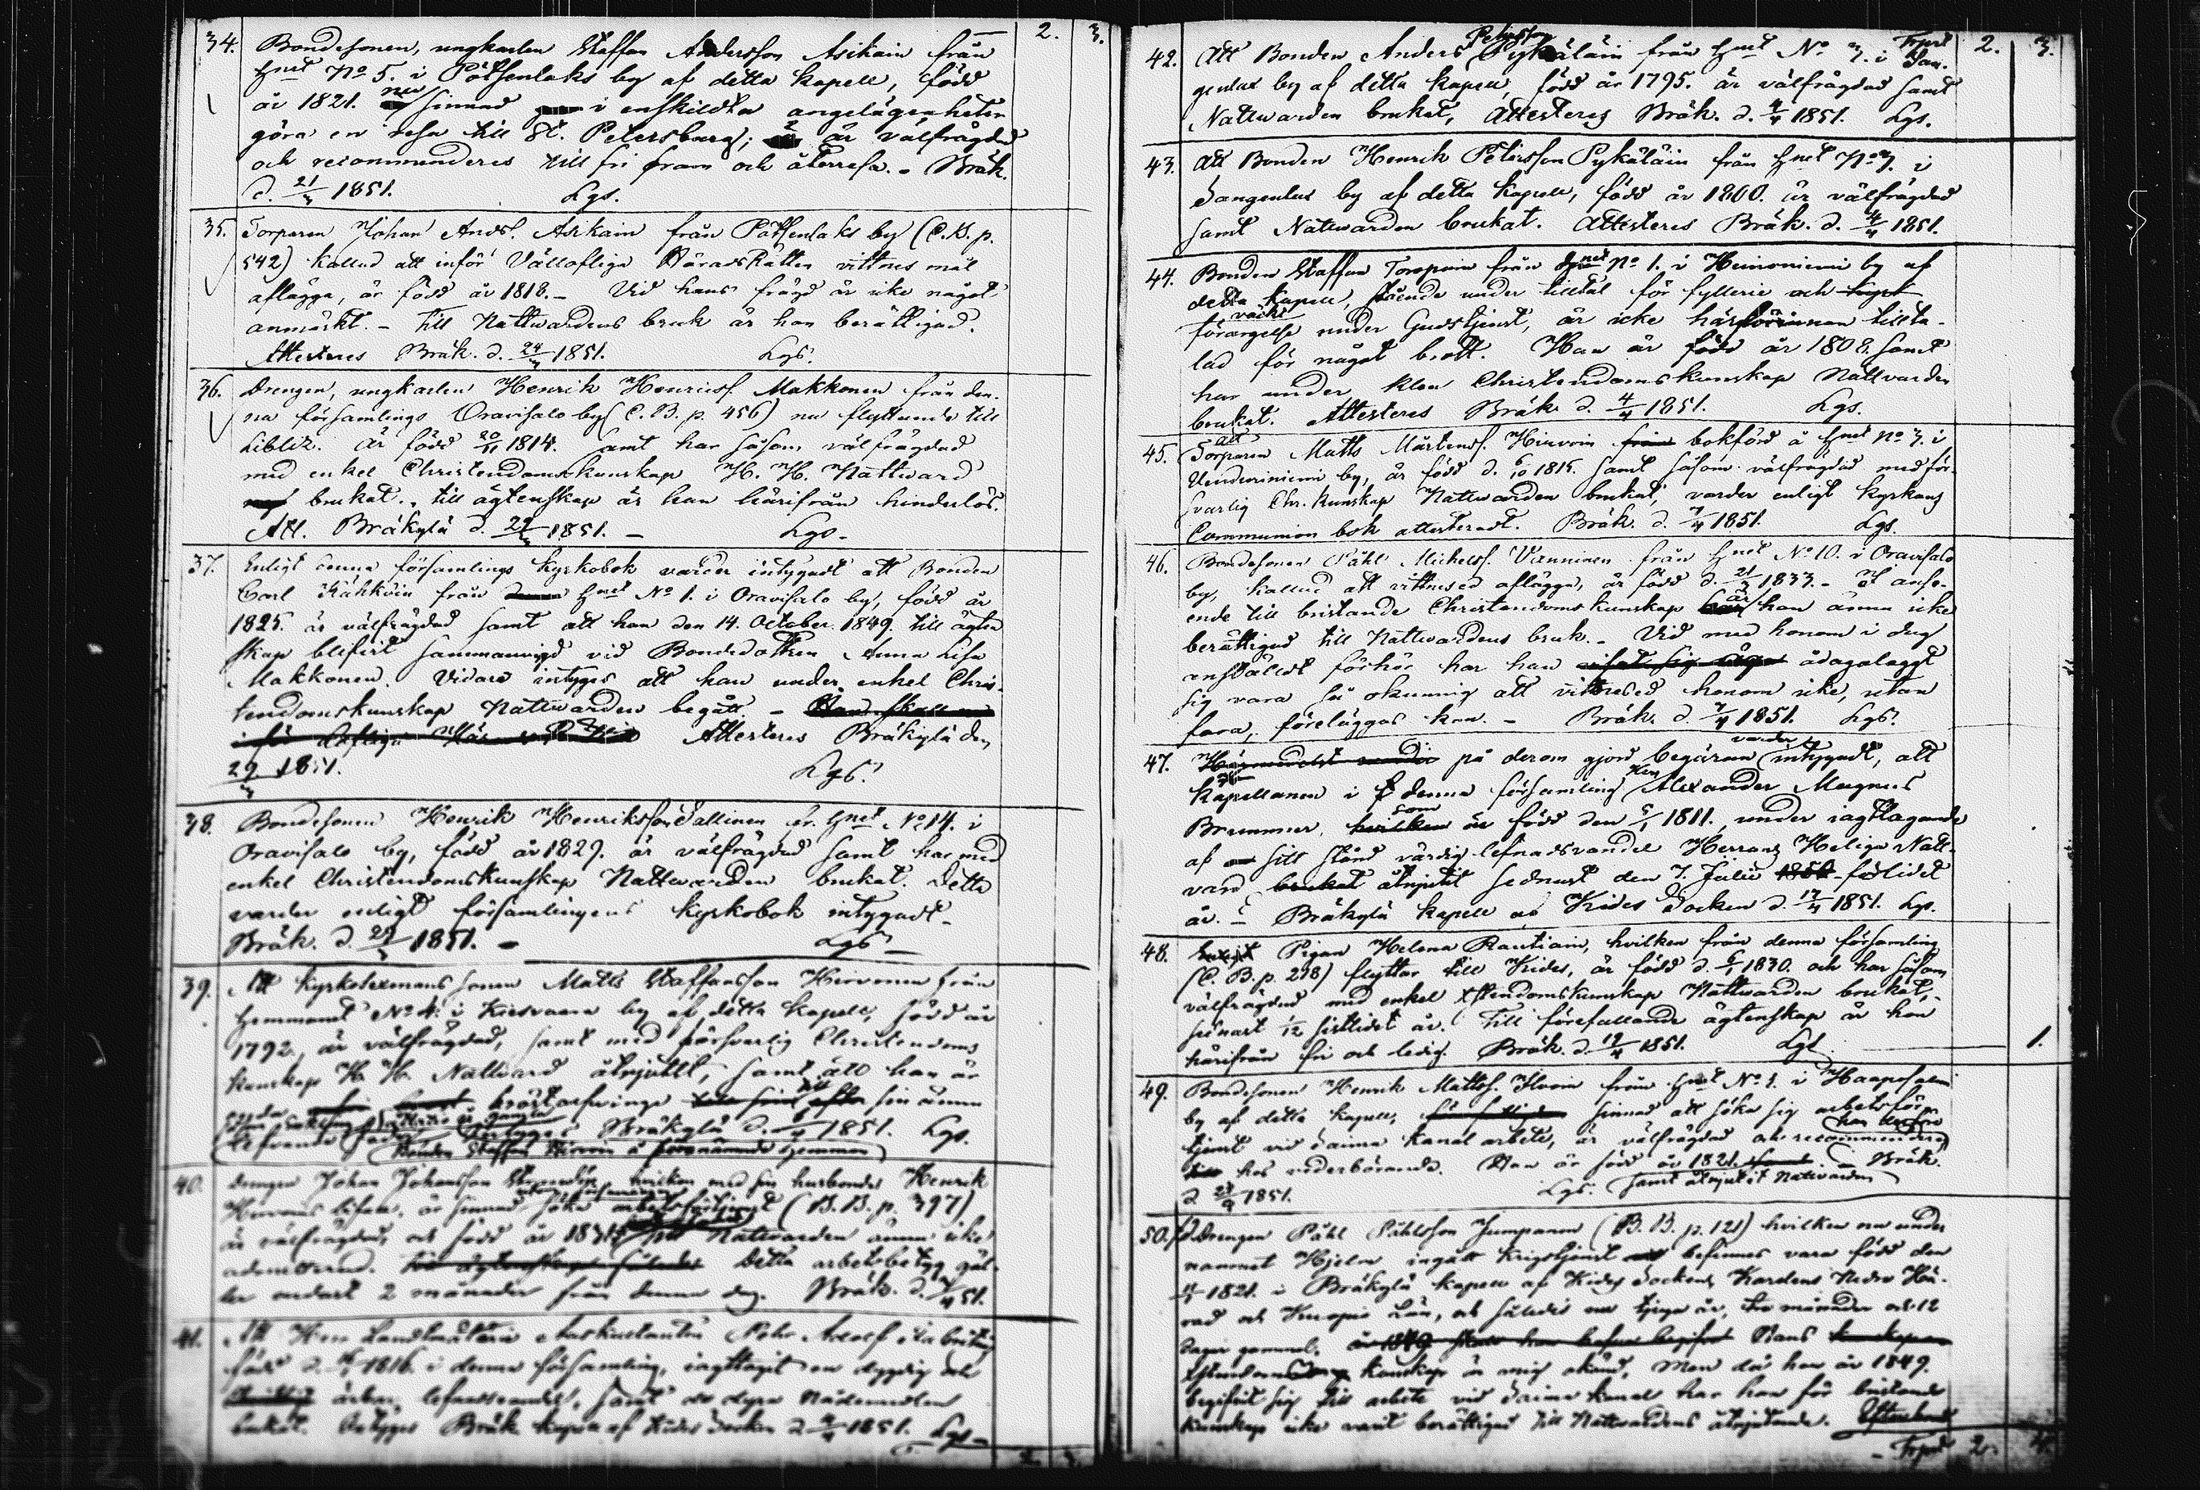 34. Bondesonen, ungkarlen Staffan Andersson Asikain från 2. 3.
Hmt No 5. i Pötsenlaks by af detta kapell, född
år 1821. nu sinnad i enskildta angelägenheter
göra en resa till St. Petersburg; är välfrägdad
och recommenderes till fri fram och återresa. - Bräk.
d. 21/3 1851. Lgs.
35. Torparen Johan Andsf. Asikain från Pötsenlaks by (C. B. p.
542) kallad att inför Vällofliga HäradsRätten vittnes mål
aflägga, är född år 1818. - Vid hans frägd är icke något
anmärkt. - Till Nattwardens bruk är han berättigad.
Attesteres Bräk. d. 24/3 1851. Lgs.
36. Drengen, ungkarlen Henrik Henricsf. Makkonen från den-
na församlings Oravisalo by (C. B. p. 456) nu flyttande till
Libliz. är född 20/11 1814. samt har såsom välfrägdad
med enkel Christendomskunskap H. H. Nattward
brukat. till ägtenskap är han härifrån hinderlös.
Att. Bräkylä d. 29/3 1851. - Lgs. -
37. Enligt denna församlings kyrkobok varder intygadt att Bonden
Carl Kähköin från Hmt No 1. i Oravisalo by, född år
1825. är välfrägdad samt att han den 14. October 1849. till ägten
skap blifvit sammanvigd vid Bondedottren Anna Lisa
Makkonen. Vidare intyges att han under enkel Chris-
tendomskunskap Nattwarden begått -
Attesteres Bräkylä den
29/3 1851. Lgs.
38. Bondesonen Henrik Henriksson Sallinen fr. Hmt No 14. i
Oravisalo by, född år 1829. är välfrägdad samt har med
enkel Christendomskunskap Nattwarden brukat. Detta
varder enligt församlingens kyrkobok intygadt -
Bräk. d. 29/3 1851. - Lgs -
39. Att kyrkotexmans sonen Matts Staffansson Hirvonen från
Hemmanet No 4. i Kiesvaara by af detta kapell, född år
1792. är välfrägdad, samt med försvarlig Christendoms
kunskap H. H. Nattward åtnjutit, samt att han är
bröstarfvinge sin ännu
lefvande Bräkylä d. 1/4 1851. Lgs.
Bonden Staffan Hirvoin å förenämnde Hemman
40. Drengen Johan Johansson hvilken med sin husbonde Henrik
Hirvonen är sinnad söka (B. B. p. 397)
är välfrägdad, och född år Nattwarden ännu icke
admitterad. Detta arbetsbetyg gäl-
ler endast 2 månader från denna dag. Bräk. d. 51.
41. Att Herr Landtmäteri Auskultanten Adolf
född d. 1816. i denna församling, iagttagit en dygdig och
ärbar lefnadsvandel, samt de dyra Nådemedlen
brukat. Betyges Bräk. kapell af Kides Socken d. 4/4 1851. Lgs -
42. Att Bonden Anders Petersson Pykäläin från Hmt No 7. i San- Trpt 2. 3.
genlax by af detta kapell, född år 1795. är välfrägdad samt
Nattwarden brukat, Attesteres Bräk. d. 4/4 1851. Lgs.
43. Att Bonden Henrik Petersson Pykäläin från Hmt No 7. i
Sangenlax by af detta kapell, född år 1800. är välfrägdad
samt Nattwarden brukat. Attesteres Bräk. d. 4/4 1851.
44. Bonden Staffan Toropain från Hmt No 1. i Heinoniemi by af
detta kapell, stående under tilltal för fylleri och
väckt förargelse under Gudstjenst, är icke härförinnan tillta-
lad för något brott. Han är född år 1808. samt
har under klen Christendomskunskap Nattvarden
brukat. Attesteres Bräk. d. 4/4 1851. Lgs.
45. Att Torparen Matts Mårtensf. Hirvoin bokförd å Hmt No 3. i
by, är född d. 6/10 1815. samt såsom välfrägdad med för-
svarlig Chr. kunskap Nattwarden brukat, varder enligt kyrkans
Communion bok attesteradt. Bräk. d. 7/4 1851. Lgs.
46. Bondesonen Påhl Michelsf. Vänninen från Hmt No 10. i Oravisalo
by, kallad att vittnesed aflägga, är född d. 21/3 1833. - I anse-
ende till bristande Christendomskunskap är han ännu icke
berättigad till Nattwardens bruk. - Vid med honom i dag
anstäldt förhör har han ådagalaggt
sig vara så okunnig att vittnesed honom icke, utan
fara, föreläggas kan. - Bräk. d. 7/4 1851. Lgs.
47. på derom gjord begäran varder intygadt, att
kapellanen i denna församling Herr Alexander Magnus
Brummer, som är född den 5/1 1811., under iagttagande
af sitt stånd värdig lefnadsvandel Herrans Heliga Natt-
vard åtnjutit sednast den 7. Julii förlidet
år. Bräkylä kapell af Kides Socken d. 17/4 1851. Lgs.
48. Pigan Helena Rautiain, hvilken från denna församling
(C. B. p. 218) flyttar till Kides, är född d. 6/1 1830. och har såsom
välfrägdad med enkel Xstendomskunskap Nattwarden brukat,
senast 1/12 sistlidet år. Till förefallande ägtenskap är hon
härifrån fri och ledig. Bräk. d. 19/4 1851. Lgs 1.
49. Bondesonen Henrik Mattsf. från Hmt No 1. i Haapasalmi
by af detta kapell, sinnad att söka sig arbetsför-
tjenst vid Saima kanal arbete, är välfrägdad och recommenderas
hos vederbörande. Han är född år 1821. Bräk.
d 1851. Lgs. samt åtnjutit Nattvarden
50. Drengen Påhl Påhlsson Jumpanen (B. B. p. 121) hvilken nu under
namnet Hjelm ingått krigstjenst befinnes vara född den
1821. i Bräkylä kapell af Kides Socken, Karelens Nedre Hä-
rad och Kuopio Län, och således nu tjugu år, månader och 12
dagar gammal. Hans
kunskap är mig okänd, Men då han år 1849.
begifvit sig till arbete vid Saima kanal har han för bristande
kunskap icke varit berättigad till Nattwardens åtnjutande.
Trpt 2.